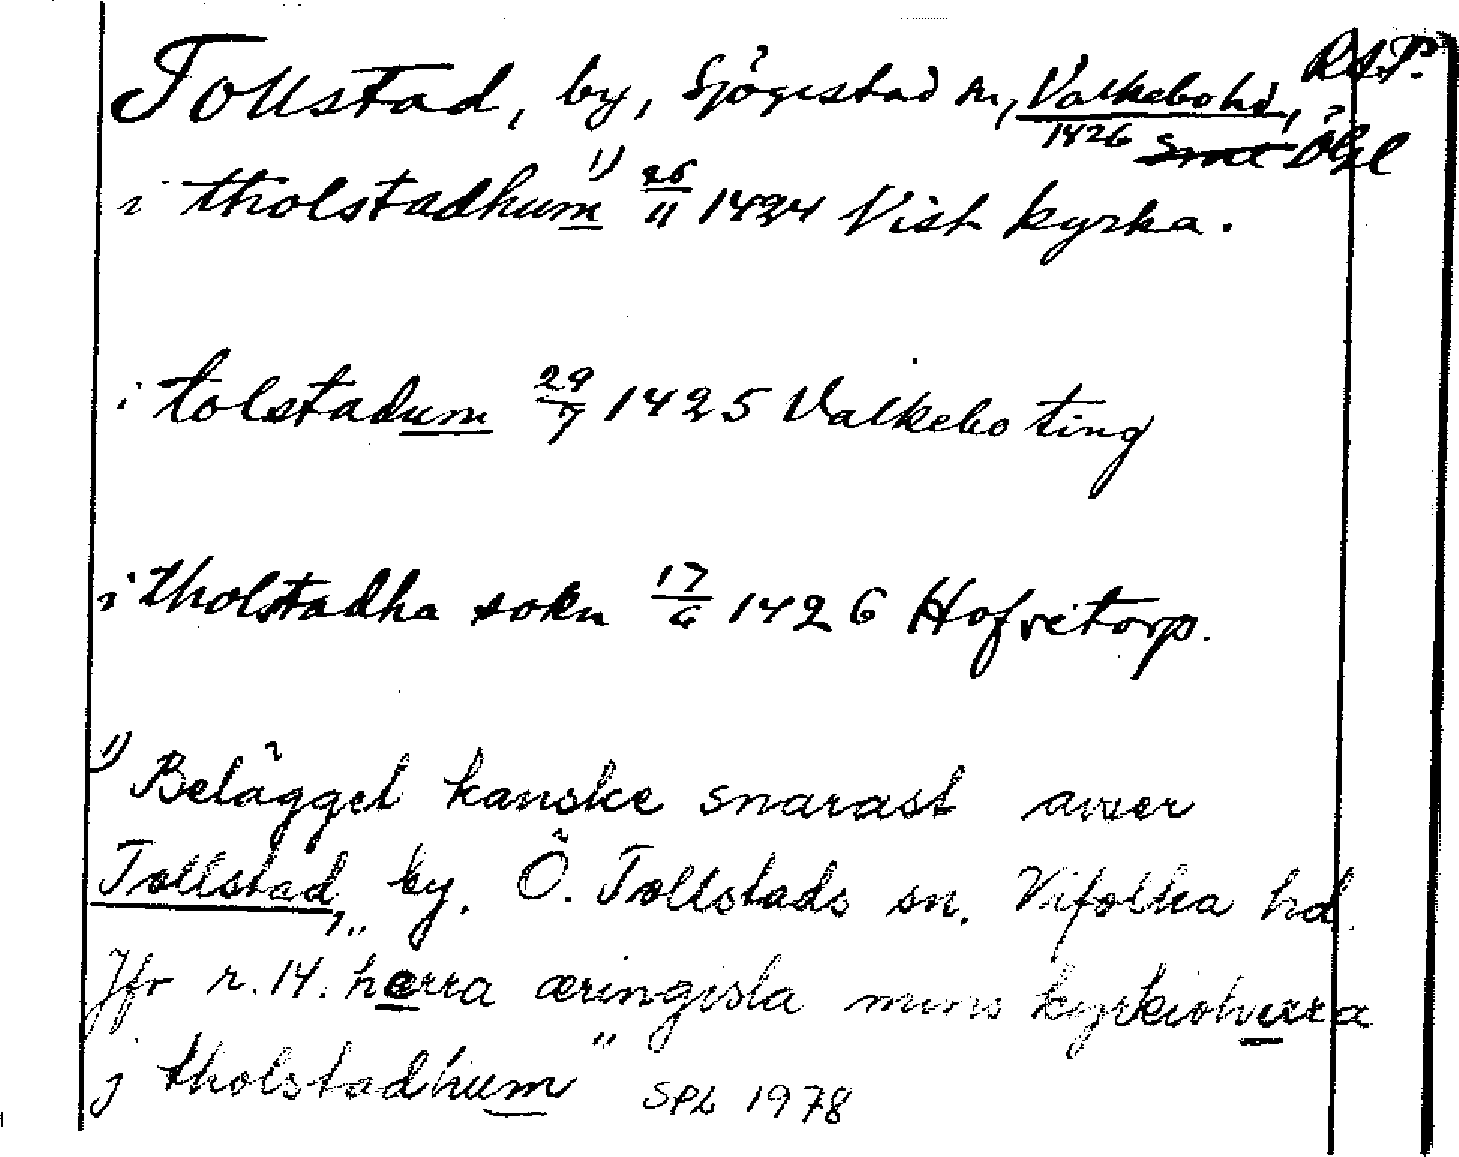 Tollstad, by, Sjögestad sn, Valkebo hd, R.A.P.
1426 Smål Ögl
i tholstadhum 1) 26/11 1424 Vist kyrka.
i tolstadum 29/7 1425 Valkebo ting
i tholstadha sokn 17/6 1426 Hofretorp.
1) Belägget kanske snarast avser
Tollstad, by, Ö. Tollstads sn. Vifolka hd.
Jfr r. 14. "herra æringisla mins kyrkiohærra
j tholstadhum" SPL 1978